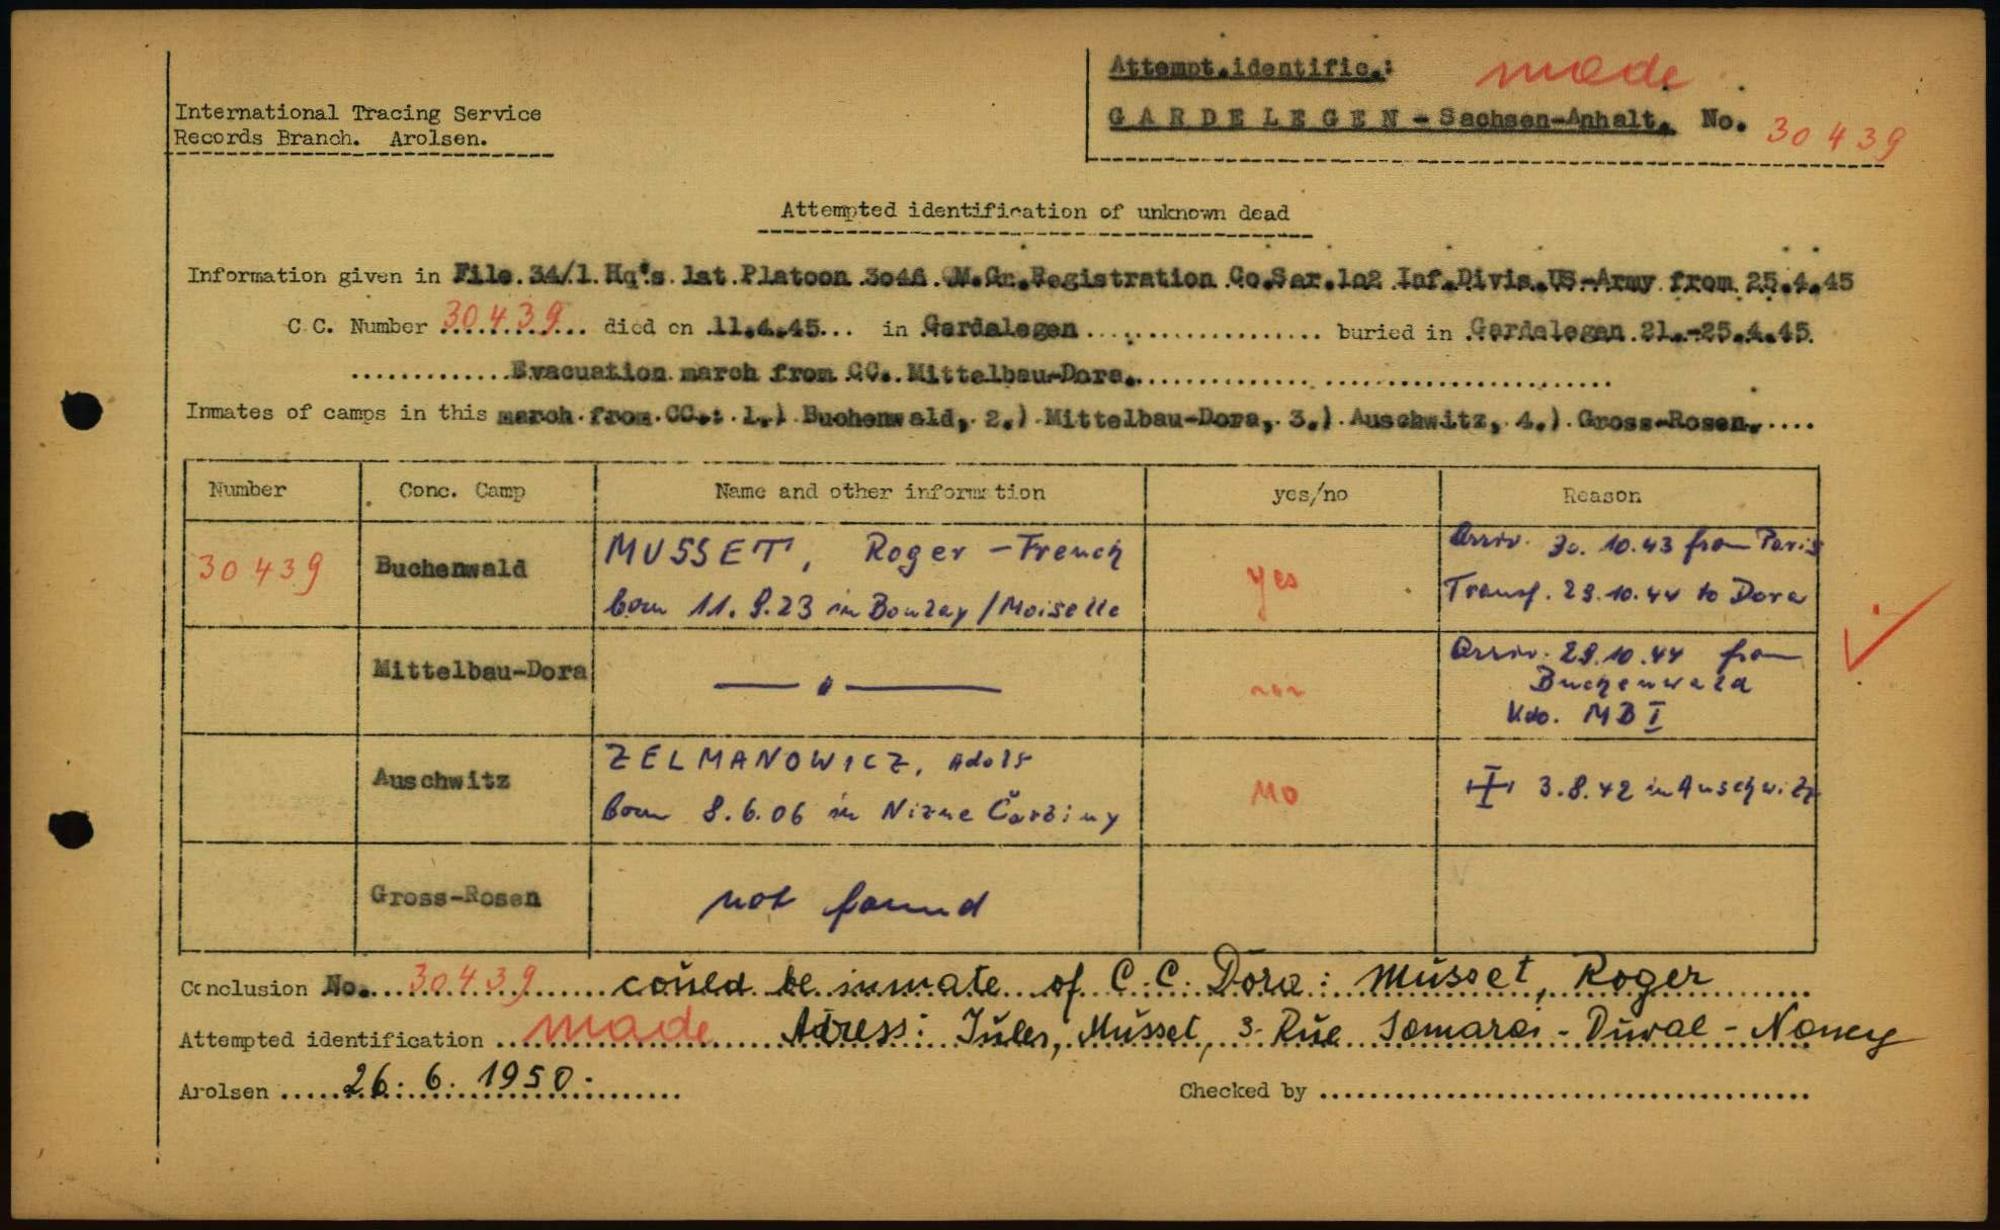 Attempt.identific.: made
International Tracing Service
GARDELEGEN - Sachsen-Anhalt. No. 30439
Records Branch. Arolsen.
Attempted identification of unknown dead
Information given in File.34/1.Hq's 1st.Platoon 3046 Q.M.Gr.Registration Co.Ser.102 Inf.Divis.US-Army from 25.4.45
C C. Number 30439 died on 11.4.45... in Gardelegen .......... buried in Gardelegen 21.-25.4.45.
............Evacuation march from CC. Mittelbau-Dora...............
Inmates of camps in this march.from.CC.: 1.) Buchenwald, 2.) Mittelbau-Dora, 3.) Auschwitz, 4.) Gross-Rosen.....
Number Conc. Camp Name and other information yes/no Reason
30439 Buchenwald MUSSET, Roger - French yes Arriv. 30.10.43 from Paris
born 11.9.23 in Bouzay/Moiselle Transf. 29.10.44 to Dora
Mittelbau-Dora — " — Arriv. 29.10.44 from
Buchenwald
Kdo. MB I
Auschwitz ZELMANOWICZ, Adolf NO 3.8.42 in Auschwitz
born 8.6.06 in Nizne Čarziny
Gross-Rosen not found
Conclusion No. 30439 could be inmate of C.C. Dora: Musset, Roger
Attempted identification made Adress: Jules, Musset, 3. Rue - Duval - Nancy
Arolsen 26. 6. 1950. Checked by ..........